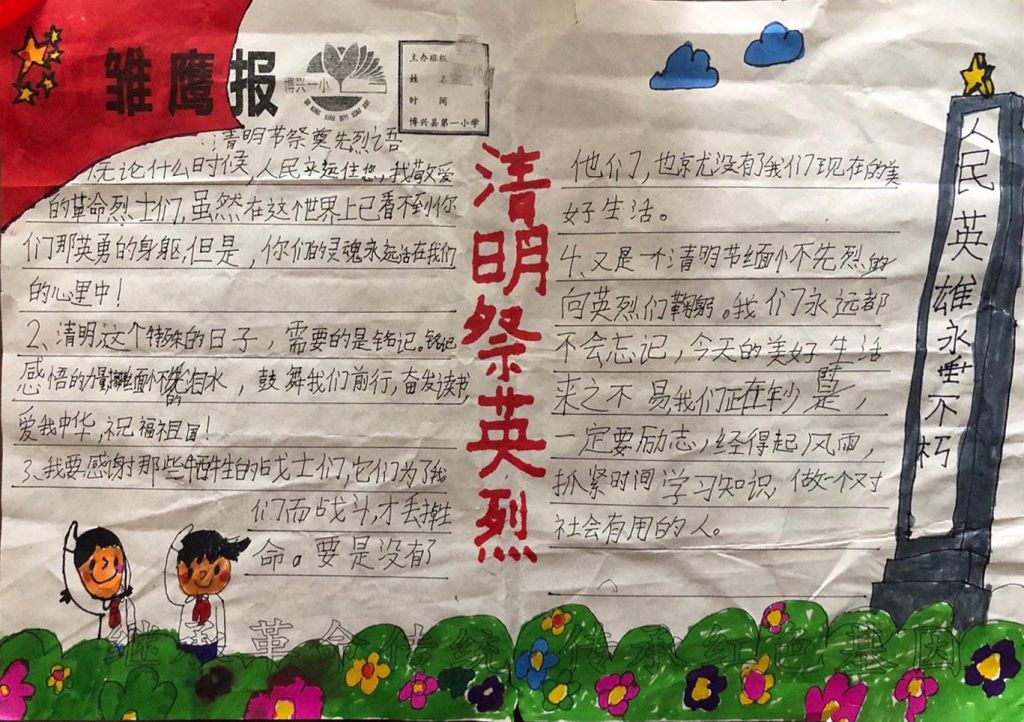 雏鹰报
博兴一小
主办班级
姓名
时间
博兴县第一小学
清明节祭奠先烈之
无论什么时候,人民永远住您,我敬爱
的革命烈士们,虽然在这个世界上已看不到你
们那英勇的身躯,但是,你们的灵魂永远活在我们
的心里中!
2、清明这个特殊的日子,需要的是铭记。铭记
感悟的力量,缅怀的先泪水,鼓舞我们前行,奋发读书,
爱我中华,祝福祖国!
3、我要感谢那些牺牲的战士们,它们为了我
们而战斗,才丢掉生
命。要是没有
清明祭英烈
他们,也京尤没有了我们现在的美
好生活。
4、又是一个清明节,缅怀先烈的
向英烈们鞠躬。我们永远都
不会忘记,今天的美好生活
来之不易,我们正在时是,
一定要励志,经得起风雨,
抓紧时间学习知识,做一个对
社会有用的人。
人民英雄永垂不朽
继承革命传统 传承红色基因